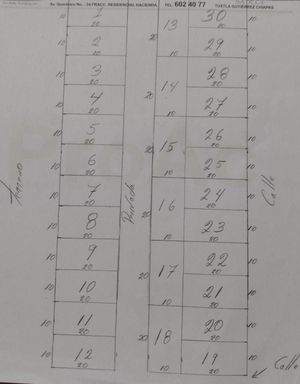 FRACC. RESIDENCIAL HACIENDA TEL. 602 40 77 TUXTLA GUTIERREZ, CHIAPAS
10 1 20 13 30 20 10
10 2 20 20 10 29 20 10
10 3 20 14 28 20 10
10 4 20 20 10 27 20 10
10 5 20 26 20 10
10 6 20 20 15 10 25 20 10
Terreno
10 7 20 Privada 24 20 10 Calle
10 8 20 20 16 10 23 20 10
10 9 20 22 20 10
10 10 20 20 17 10 21 20 10
10 11 20 20 18 20 20 10
10 12 20 10 19 20 10 Calle